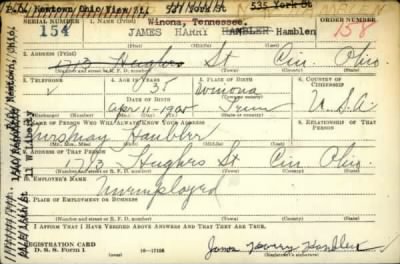 P.O. Newtown, Ohio View St. 537 York St 535 York St
Winona, Tennessee.
SERIAL NUMBER 1. NAME (Print) ORDER NUMBER
154 JAMES HARRY HAMBLER Hamblen 158
(First) (Middle) (Last)
2. ADDRESS (Print)
1713 Hughes St Cin. Ohio
(Number and street or R. F. D. number) (Town) (County) (State)
3. TELEPHONE 4. AGE IN YEARS 5. PLACE OF BIRTH 6. COUNTRY OF CITIZENSHIP
35 Winona
DATE OF BIRTH
Apr 11-1905 Tenn U.S.A
(Exchange) (Number) (Mo.) (Day) (Yr.) (State or country)
7. NAME OF PERSON WHO WILL ALWAYS KNOW YOUR ADDRESS 8. RELATIONSHIP OF THAT PERSON
(Mr., Mrs., Miss) (First) (Middle) (Last)
9. ADDRESS OF THAT PERSON
1713 Hughes St Cin. Ohio.
(Number and street or R. F. D. number) (Town) (County) (State)
10. EMPLOYER'S NAME
Unemployed
11. PLACE OF EMPLOYMENT OR BUSINESS
(Number and street or R. F. D. number) (Town) (County) (State)
I AFFIRM THAT I HAVE VERIFIED ABOVE ANSWERS AND THAT THEY ARE TRUE.
REGISTRATION CARD
D. S. S. Form 1 16-17105 James Harry Hamblen
(Registrant's signature)